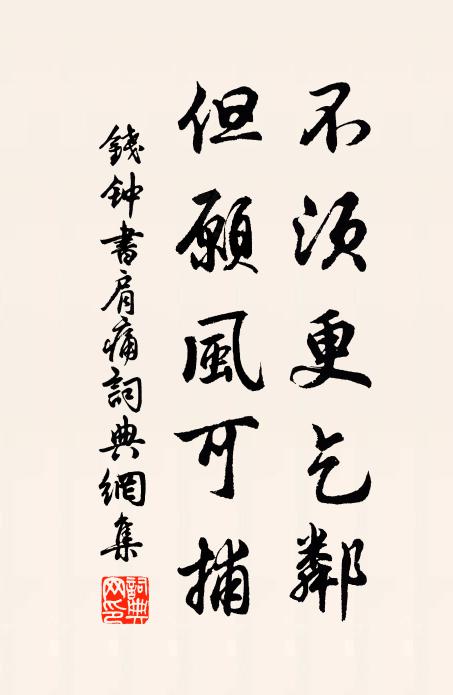 不須更乞鄰
但願風可捕
錢钟書肩痛詞典網集
詞典网印